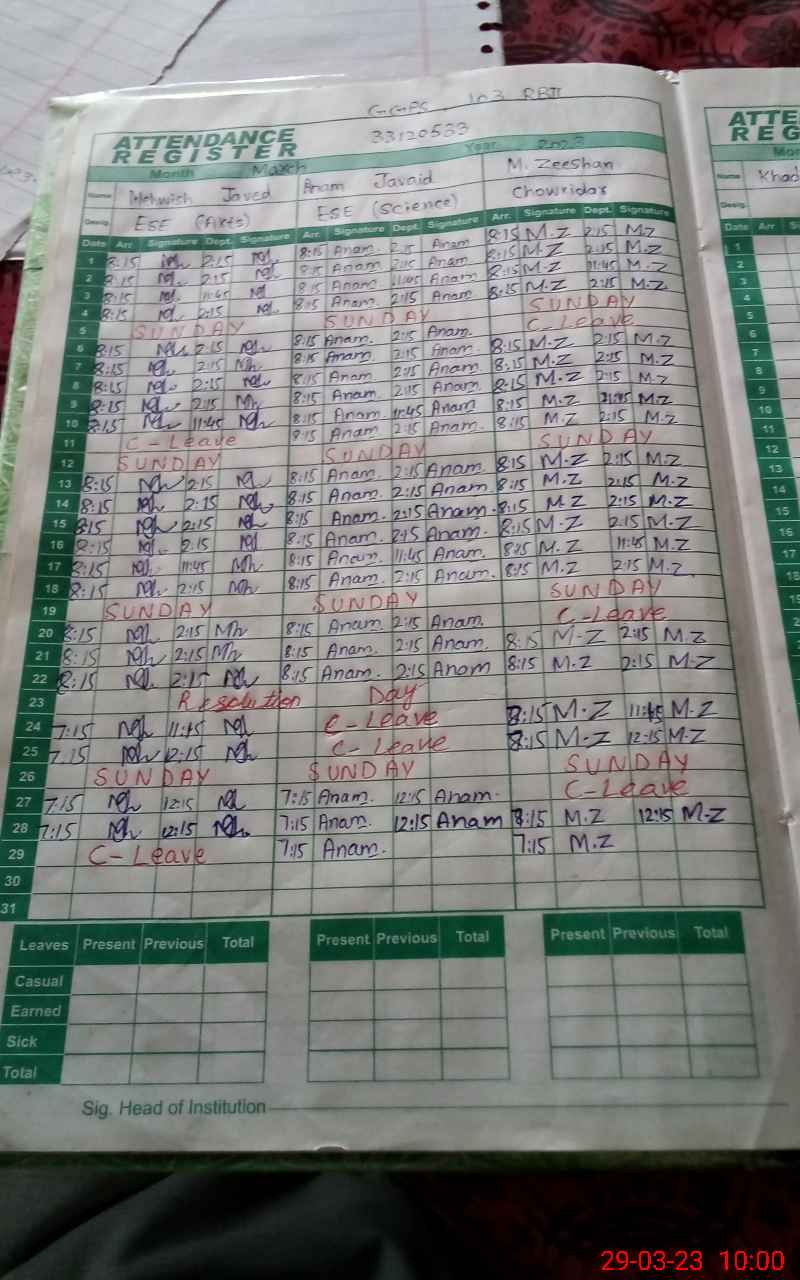 G.G.P.S 103 RBII
33120533
ATTENDANCE REGISTER
Month March Year 2023
Name Mehwish Javed Anam Javaid M. Zeeshan
Desig. ESE (Arts) ESE (Science) Chowridar
Date Arr. Signature Dept. Signature Arr. Signature Dept. Signature Arr. Signature Dept. Signature
1 8:15 2:15 8:15 Anam 2:15 Anam 8:15 M.Z 2:15 M.Z
2 8:15 2:15 8:15 Anam 2:15 Anam 8:15 M.Z 2:15 M.Z
3 8:15 11:45 8:15 Anam 11:45 Anam 8:15 M.Z 11:45 M.Z
4 8:15 2:15 8:15 Anam 2:15 Anam 8:15 M.Z 2:15 M.Z
5 SUNDAY SUNDAY SUNDAY
6 8:15 2:15 8:15 Anam. 2:15 Anam. C-Leave
7 8:15 2:15 8:15 Anam. 2:15 Anam. 8:15 M.Z 2:15 M.Z
8 8:15 2:15 8:15 Anam. 2:15 Anam. 8:15 M.Z 2:15 M.Z
9 8:15 2:15 8:15 Anam. 2:15 Anam. 8:15 M.Z 2:15 M.Z
10 8:15 11:45 8:15 Anam. 11:45 Anam. 8:15 M.Z 11:45 M.Z
11 C-Leave 8:15 Anam. 2:15 Anam. 8:15 M.Z 2:15 M.Z
12 SUNDAY SUNDAY SUNDAY
13 8:15 2:15 8:15 Anam. 2:15 Anam. 8:15 M.Z 2:15 M.Z
14 8:15 2:15 8:15 Anam. 2:15 Anam. 8:15 M.Z 2:15 M.Z
15 8:15 2:15 8:15 Anam. 2:15 Anam. 8:15 M.Z 2:15 M.Z
16 8:15 2:15 8:15 Anam. 2:15 Anam. 8:15 M.Z 2:15 M.Z
17 8:15 11:45 8:15 Anam. 11:45 Anam. 8:15 M.Z 11:45 M.Z
18 8:15 2:15 8:15 Anam. 2:15 Anam. 8:15 M.Z 2:15 M.Z
19 SUNDAY SUNDAY SUNDAY
20 8:15 2:15 8:15 Anam. 2:15 Anam. C-Leave
21 8:15 2:15 8:15 Anam. 2:15 Anam. 8:15 M.Z 2:15 M.Z
22 8:15 2:15 8:15 Anam. 2:15 Anam 8:15 M.Z 2:15 M.Z
23 Resolution Day
24 7:15 11:45 C-Leave 8:15 M.Z 11:45 M.Z
25 7:15 12:15 C-Leave 8:15 M.Z 12:15 M.Z
26 SUNDAY SUNDAY SUNDAY
27 7:15 12:15 7:15 Anam. 12:15 Anam. C-Leave
28 7:15 12:15 7:15 Anam. 12:15 Anam 8:15 M.Z 12:15 M.Z
29 C-Leave 7:15 Anam. 7:15 M.Z
30
31
Leaves Present Previous Total Present Previous Total Present Previous Total
Casual
Earned
Sick
Total
Sig. Head of Institution
ATTE
REG
Name Khad
Desig.
Date Arr
1
2
3
4
5
6
7
8
9
10
11
12
13
14
15
16
17
18
29-03-23 10:00